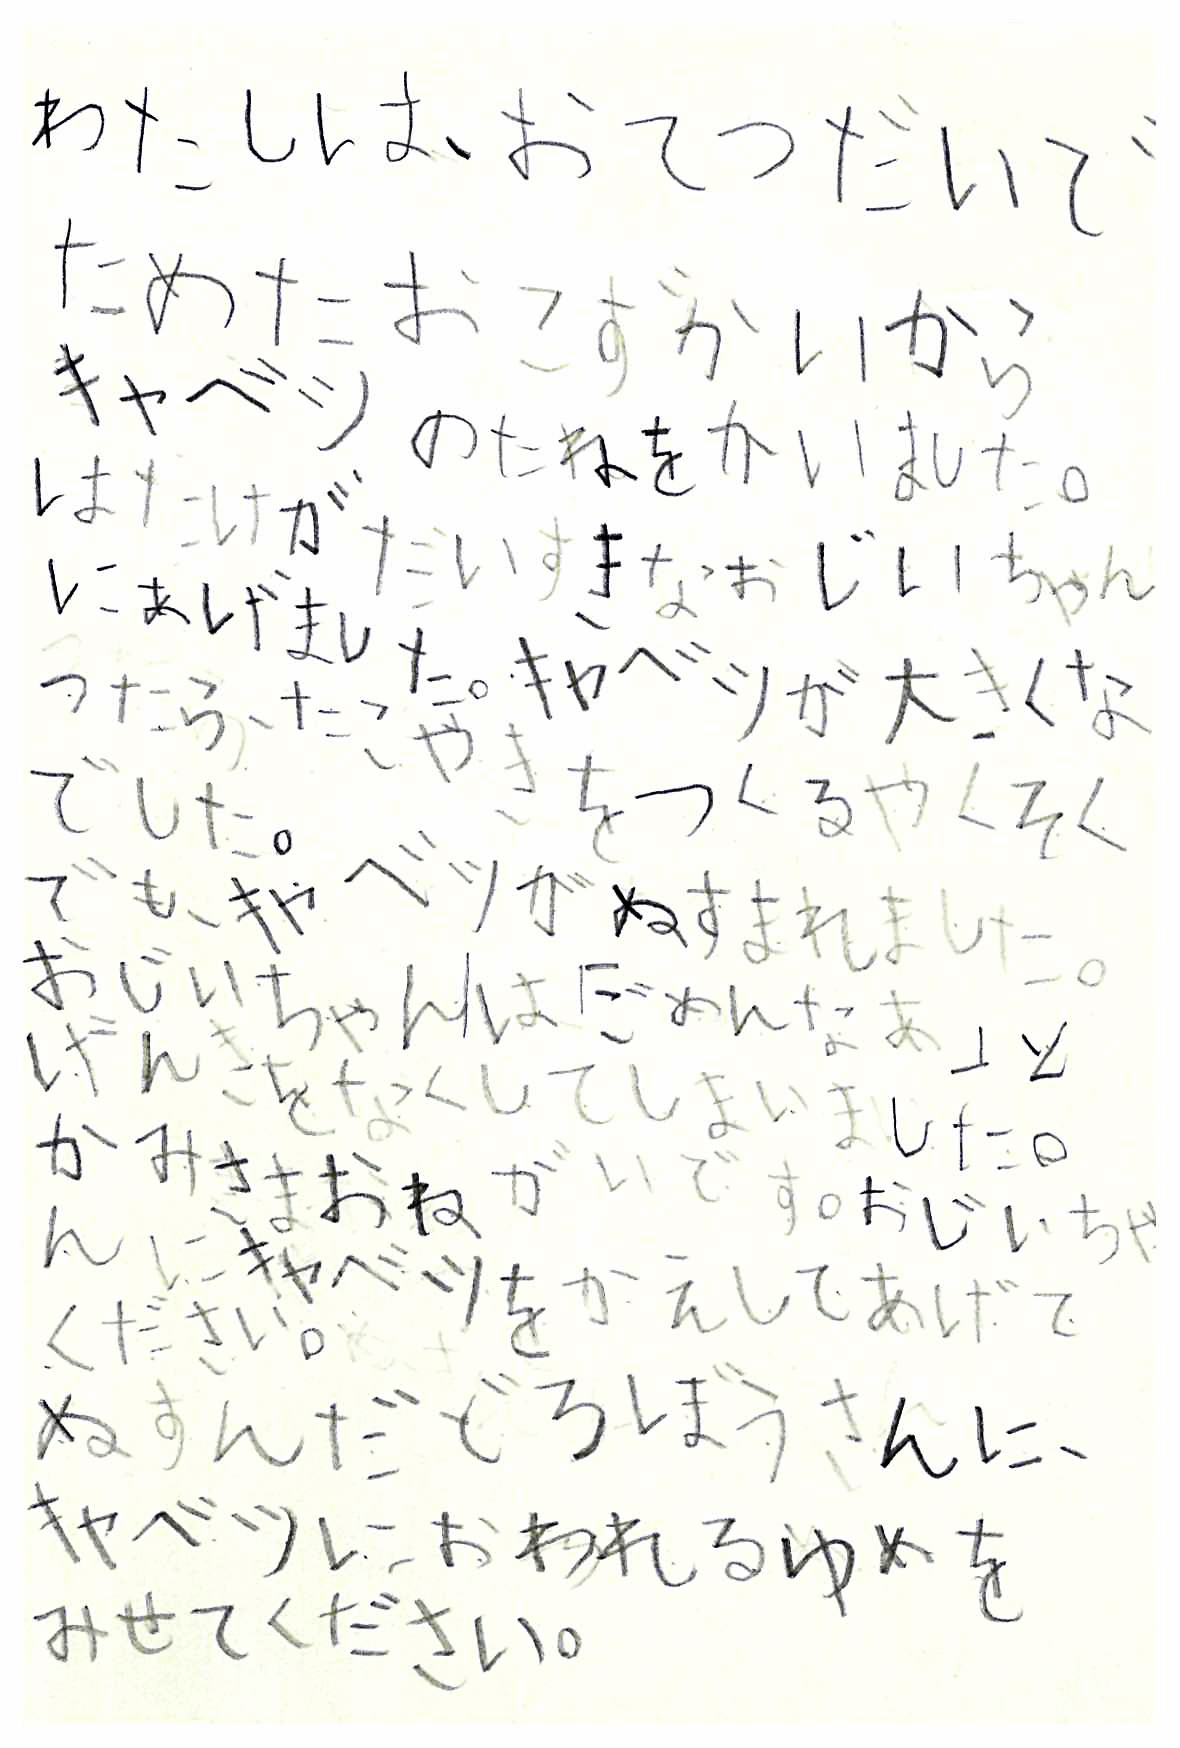 わたしは、おてつだいで
ためたおこずかいから
キャベツのたねをかいました。
はたけがだいすきなおじいちゃん
にあげました。キャベツが大きくな
ったら、たこやきをつくるやくそく
でした。
でも、キャベツがぬすまれました。
おじいちゃんは「ごめんなあ」と
げんきをなくしてしまいました。
かみさまおねがいです。おじいちゃ
んにキャベツをかえしてあげて
ください。
ぬすんだどろぼうさんに、
キャベツにおわれるゆめを
みせてください。